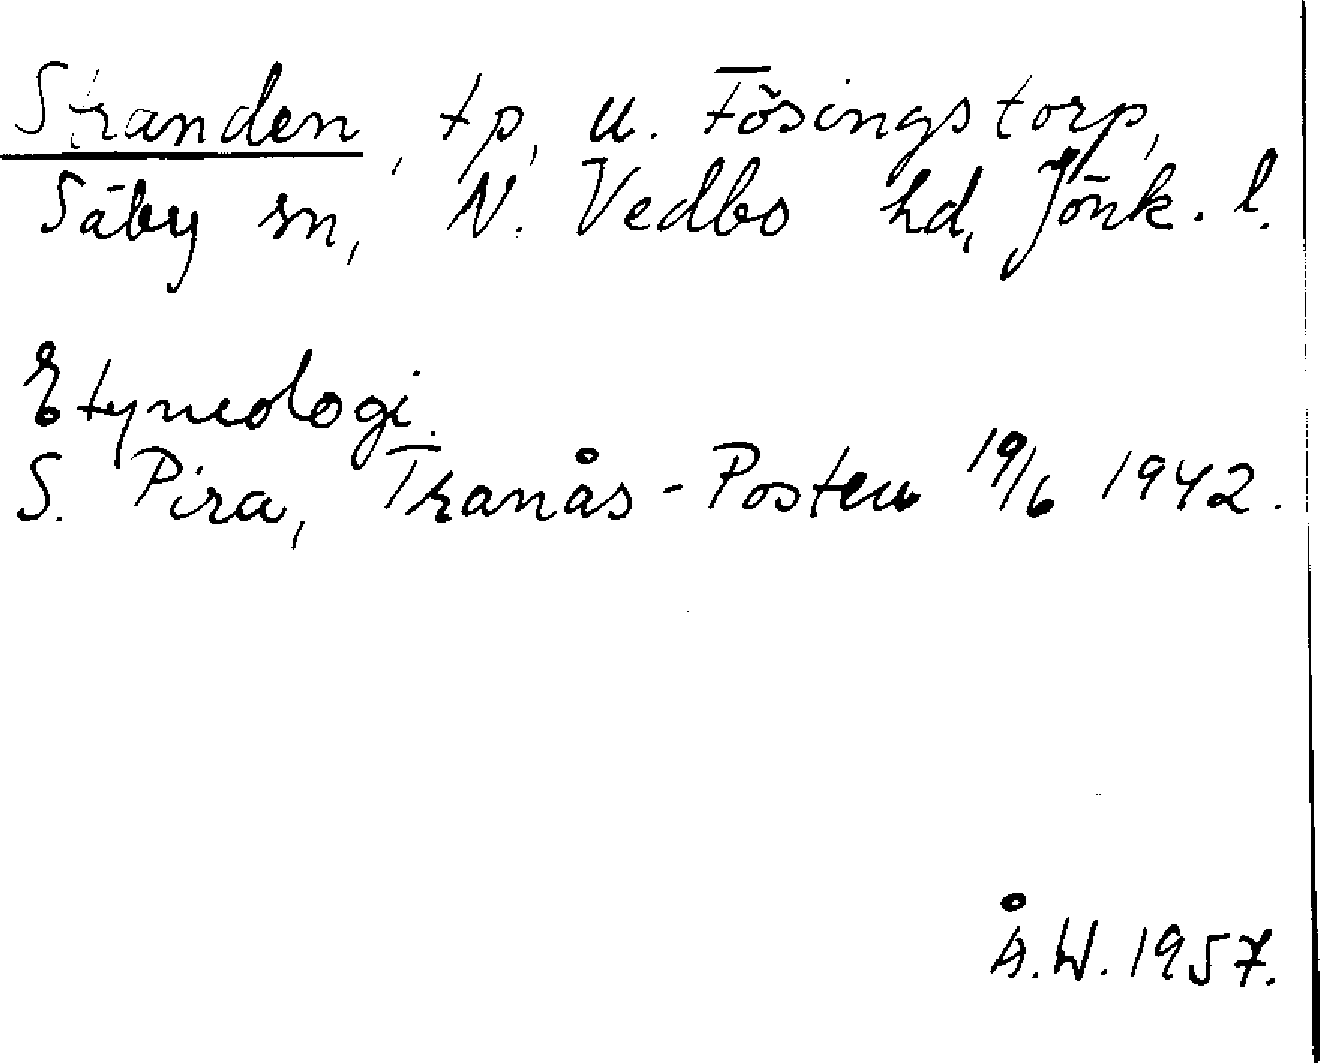 Stranden, tp, u. Fösingstorp,
Säby sn, N. Vedbo hd, Jönk. l.
Etymologi.
S. Pira, Tranås-Posten 19/6 1942.
Å.W. 1957.